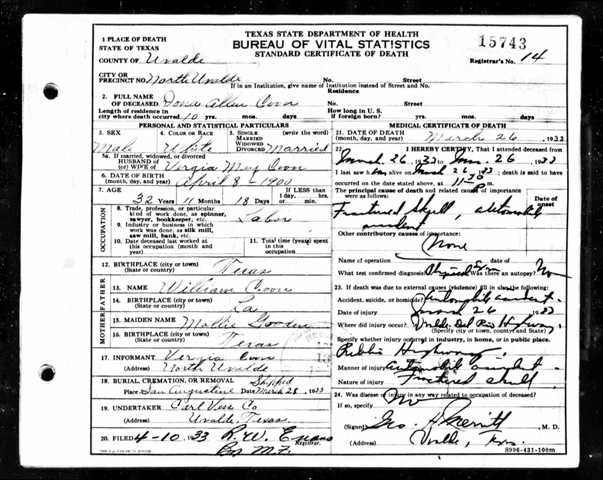 TEXAS STATE DEPARTMENT OF HEALTH
BUREAU OF VITAL STATISTICS
STANDARD CERTIFICATE OF DEATH
15743
Registrar's No. 14
1 PLACE OF DEATH
STATE OF TEXAS
COUNTY OF Uvalde
CITY OR
PRECINCT NO. North Uvalde No. Street
If in an Institution, give name of Institution instead of Street and No.
2. FULL NAME
OF DECEASED Allen Coon
Residence
No. Street
Length of residence in
city where death occurred 10 yrs. mos. days
How long in U. S.
if foreign born? yrs. mos. days
PERSONAL AND STATISTICAL PARTICULARS
3. SEX
Male
4. COLOR OR RACE
White
5. SINGLE
MARRIED
WIDOWED
DIVORCED Married
5a. If married, widowed, or divorced
HUSBAND OF
(or) WIFE OF Coon
6. DATE OF BIRTH
(month, day, and year) April 8 - 1900
7. AGE
32 Years 11 Months 18 Days
If LESS than
1 day, hrs.
or min.
OCCUPATION
8. Trade, profession, or particular
kind of work done, as spinner,
sawyer, bookkeeper, etc. Labor
9. Industry or business in which
work was done, as silk mill,
saw mill, bank, etc.
10. Date deceased last worked at
this occupation (month and
year)
11. Total time (years) spent in
this occupation.
12. BIRTHPLACE (city or town)
(State or country) Texas
FATHER
13. NAME William Coon
14. BIRTHPLACE (city or town)
(State or country) La
MOTHER
15. MAIDEN NAME Mollie
16. BIRTHPLACE (city or town)
(State or country) Texas
17. INFORMANT Coon
(Address) North Uvalde
18. BURIAL, CREMATION, OR REMOVAL Shipped
Place San Augustine Date March 28, 1933
19. UNDERTAKER Co
(Address) Uvalde, Texas
20. FILED 4-10 33 R. W. Evans
Registrar.
MEDICAL CERTIFICATE OF DEATH
21. DATE OF DEATH
(month, day, and year) March 26, 1933
22. I HEREBY CERTIFY, That I attended deceased from
March 26, 1933 to 26 1933
I last saw him alive on March 26, 1933; death is said to have
occurred on the date stated above, at 11-30 m.
The principal cause of death and related causes of importance
were as follows:
Date of
onset
Fractured Skull, automobile
accident
Other contributory causes of importance:
None
Name of operation date of
What test confirmed diagnosis? Was there an autopsy? No
23. If death was due to external causes (violence) fill in also the following:
Accident, suicide, or homicide? accident
Date of injury March 26 1933
Where did injury occur? Uvalde Del Rio Highway
(Specify city or town, county and State)
Specify whether injury occurred in industry, in home, or in public place.
Public Highway
Manner of injury Automobile accident
Nature of injury Fractured skull
24. Was disease or injury in any way related to occupation of deceased?
If so, specify No
(Signed) Geo. H. Merritt M. D.
(Address) Uvalde, Texas